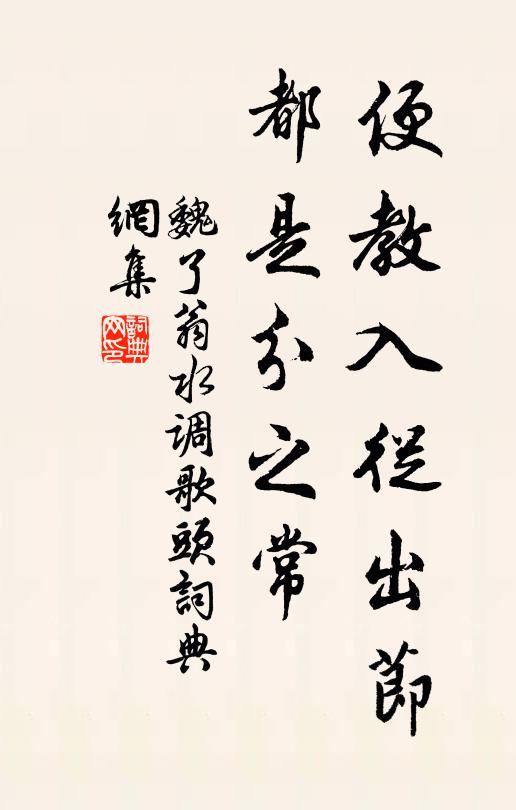 便教入從出節
都是分之常
魏了翁水调歌頭詞典
網集
詞典
网印